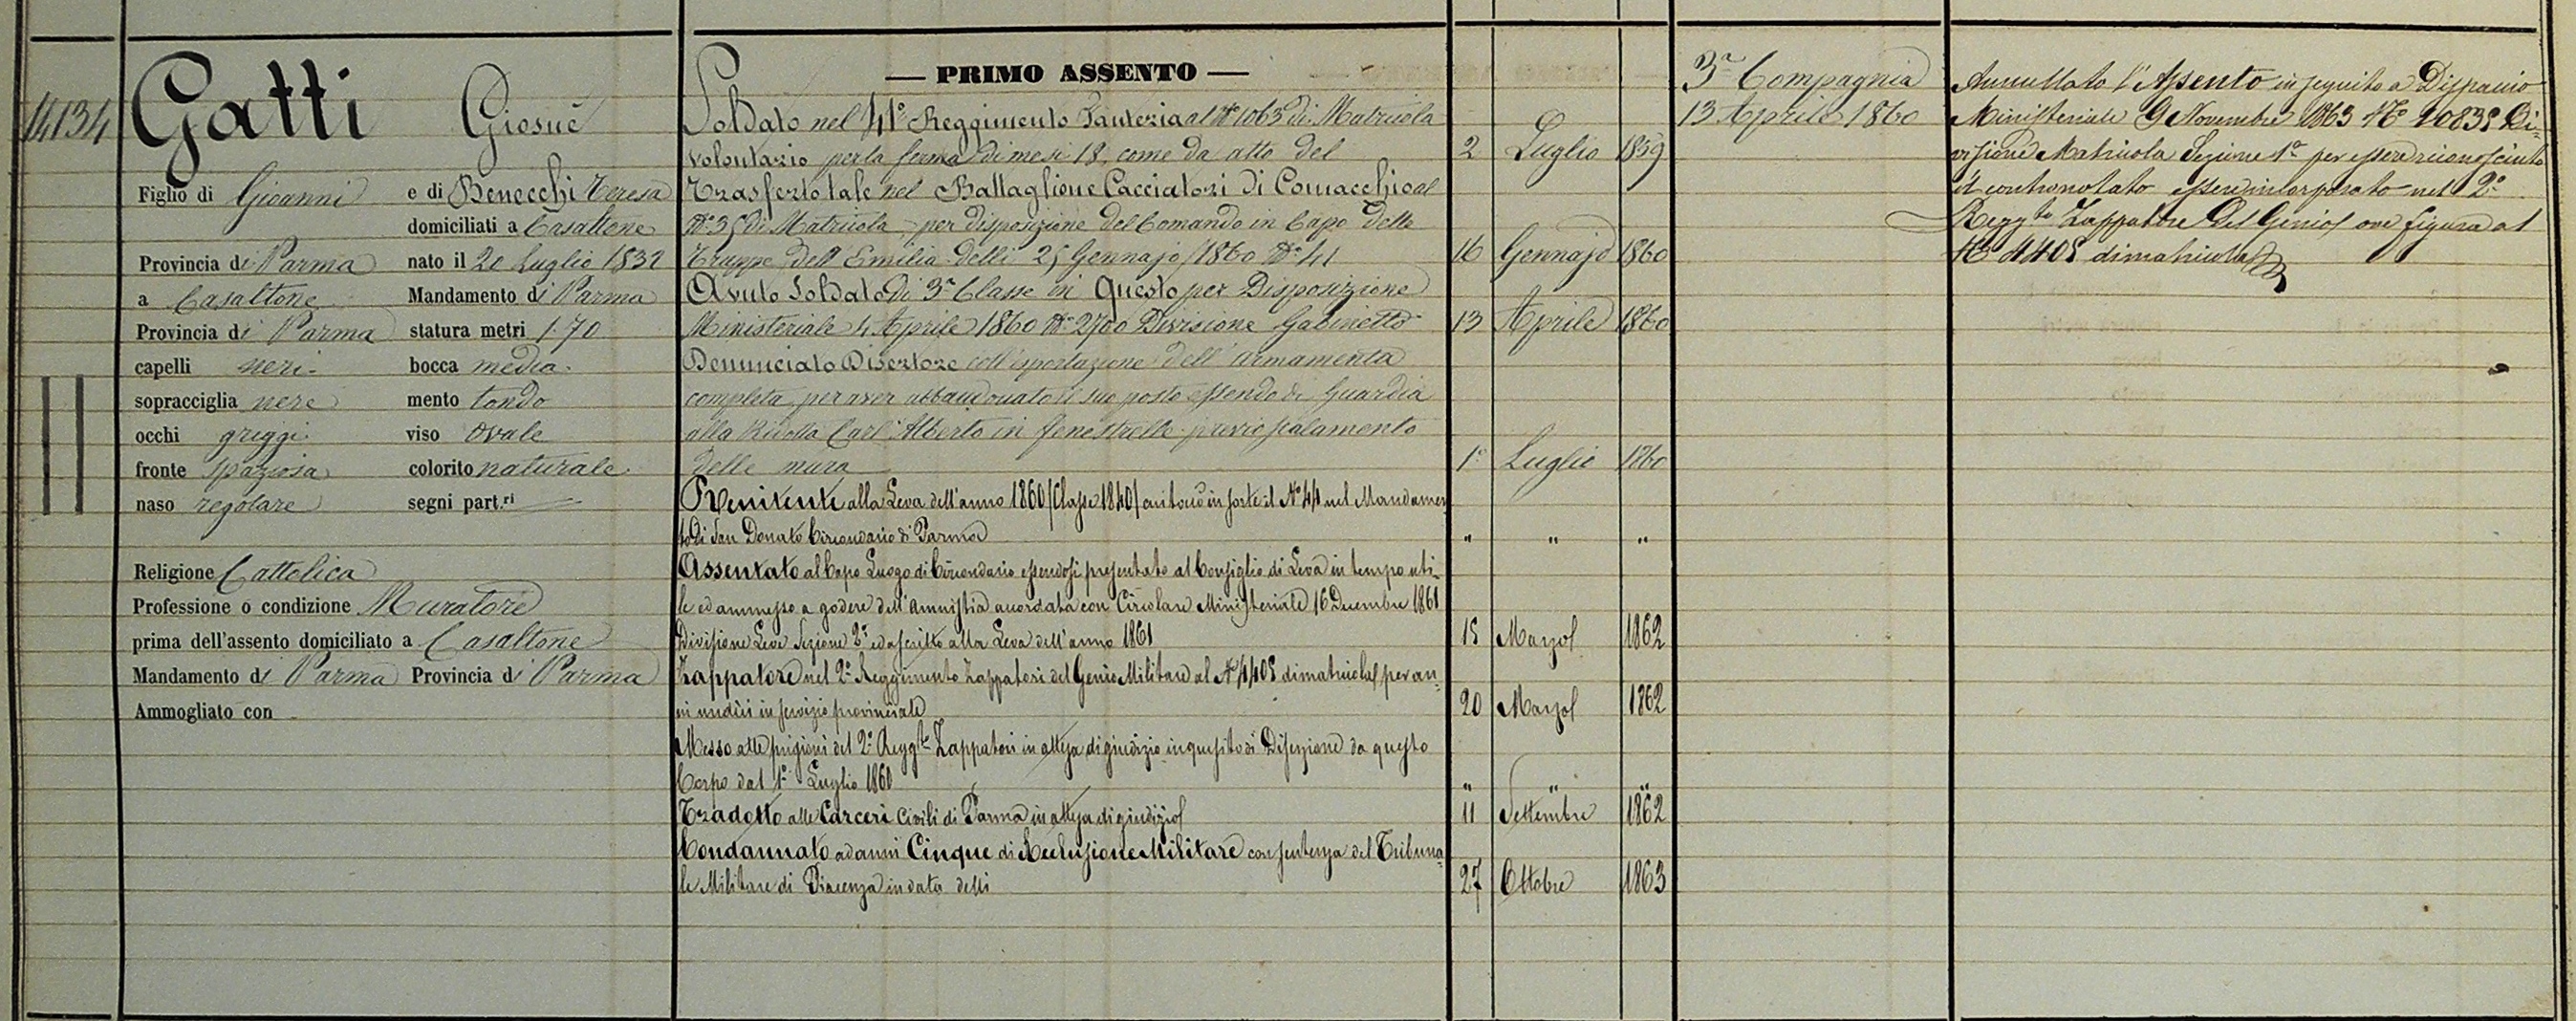 14134
Gatti Giosuè
Figlio di Giovanni e di Benecchi Teresa
domiciliati a Casaltone
Provincia di Parma nato il 20 Luglio 1832
a Casaltone Mandamento di Parma
Provincia di Parma statura metri 1.70
capelli neri bocca media
sopracciglia nere mento tondo
occhi griggi viso ovale
fronte spaziosa colorito naturale
naso regolare segni part.ri
Religione Cattolica
Professione o condizione Muratore
prima dell'assento domiciliato a Casaltone
Mandamento di Parma Provincia di Parma
Ammogliato con
— PRIMO ASSENTO —
Soldato nel 41° Reggimento Fanteria al N° 1063 di Matricola
volontario per la ferma di mesi 18, come da atto del 2 Luglio 1859
Trasferto tale nel Battaglione Cacciatori di Comacchio al
N° 35 di Matricola, per disposizione del Comando in Capo delle
Truppe dell'Emilia delli 25 Gennajo 1860 N° 41 16 Gennajo 1860
Avuto Soldato di 3a Classe in Questo per Disposizione
Ministeriale 4 Aprile 1860 N° 2700 Divisione Gabinetto 13 Aprile 1860
Denunciato Disertore coll'esportazione dell'armamento
completa, per aver abbandonato il suo posto essendo di Guardia
alla Ridotta Carl'Alberto in fenestrelle previo scalamento
delle mura 1° Luglio 1860
Renitente alla Leva dell'anno 1860 (Classe 1840) cui toccò in sorte il N° 44 nel Mandamen-
to di San Donato Circondario di Parma " " "
Assentato al Capo Luogo di Circondario essendosi presentato al Consiglio di Leva in tempo uti-
le ed ammesso a godere dell'amnistia accordata con Circolare Ministeriale 16 Decembre 1861
Divisione Leve Sezione 2a ed ascritto alla Leva dell'anno 1861 15 Marzo 1862
Zappatore nel 2° Reggimento Zappatori del Genio Militare al N° 4405 di matricola per an-
ni undici in servizio provinciale 20 Marzo 1862
Messo alle prigioni del 2° Regg.to Zappatori in attesa di giudizio inquisito di Diserzione da questo
Corpo dal 1° Luglio 1860 " " "
Tradotto alle Carceri Civili di Parma in attesa di giudizio 11 Settembre 1862
Condannato ad anni Cinque di Reclusione Militare con sentenza del Tribuna-
le Militare di Piacenza in data delli 27 Ottobre 1863
3a Compagnia
13 Aprile 1860
Annullato l'Assento in seguito a Dispaccio
Ministeriale 9 Novembre 1863 N° 10835 Di-
visione Matricola Sezione 1a per essere riconosciuto
il contronotato essere incorporato nel 2°
Regg.to Zappatore Del Genio ove figura al
N° 4405 di matricola